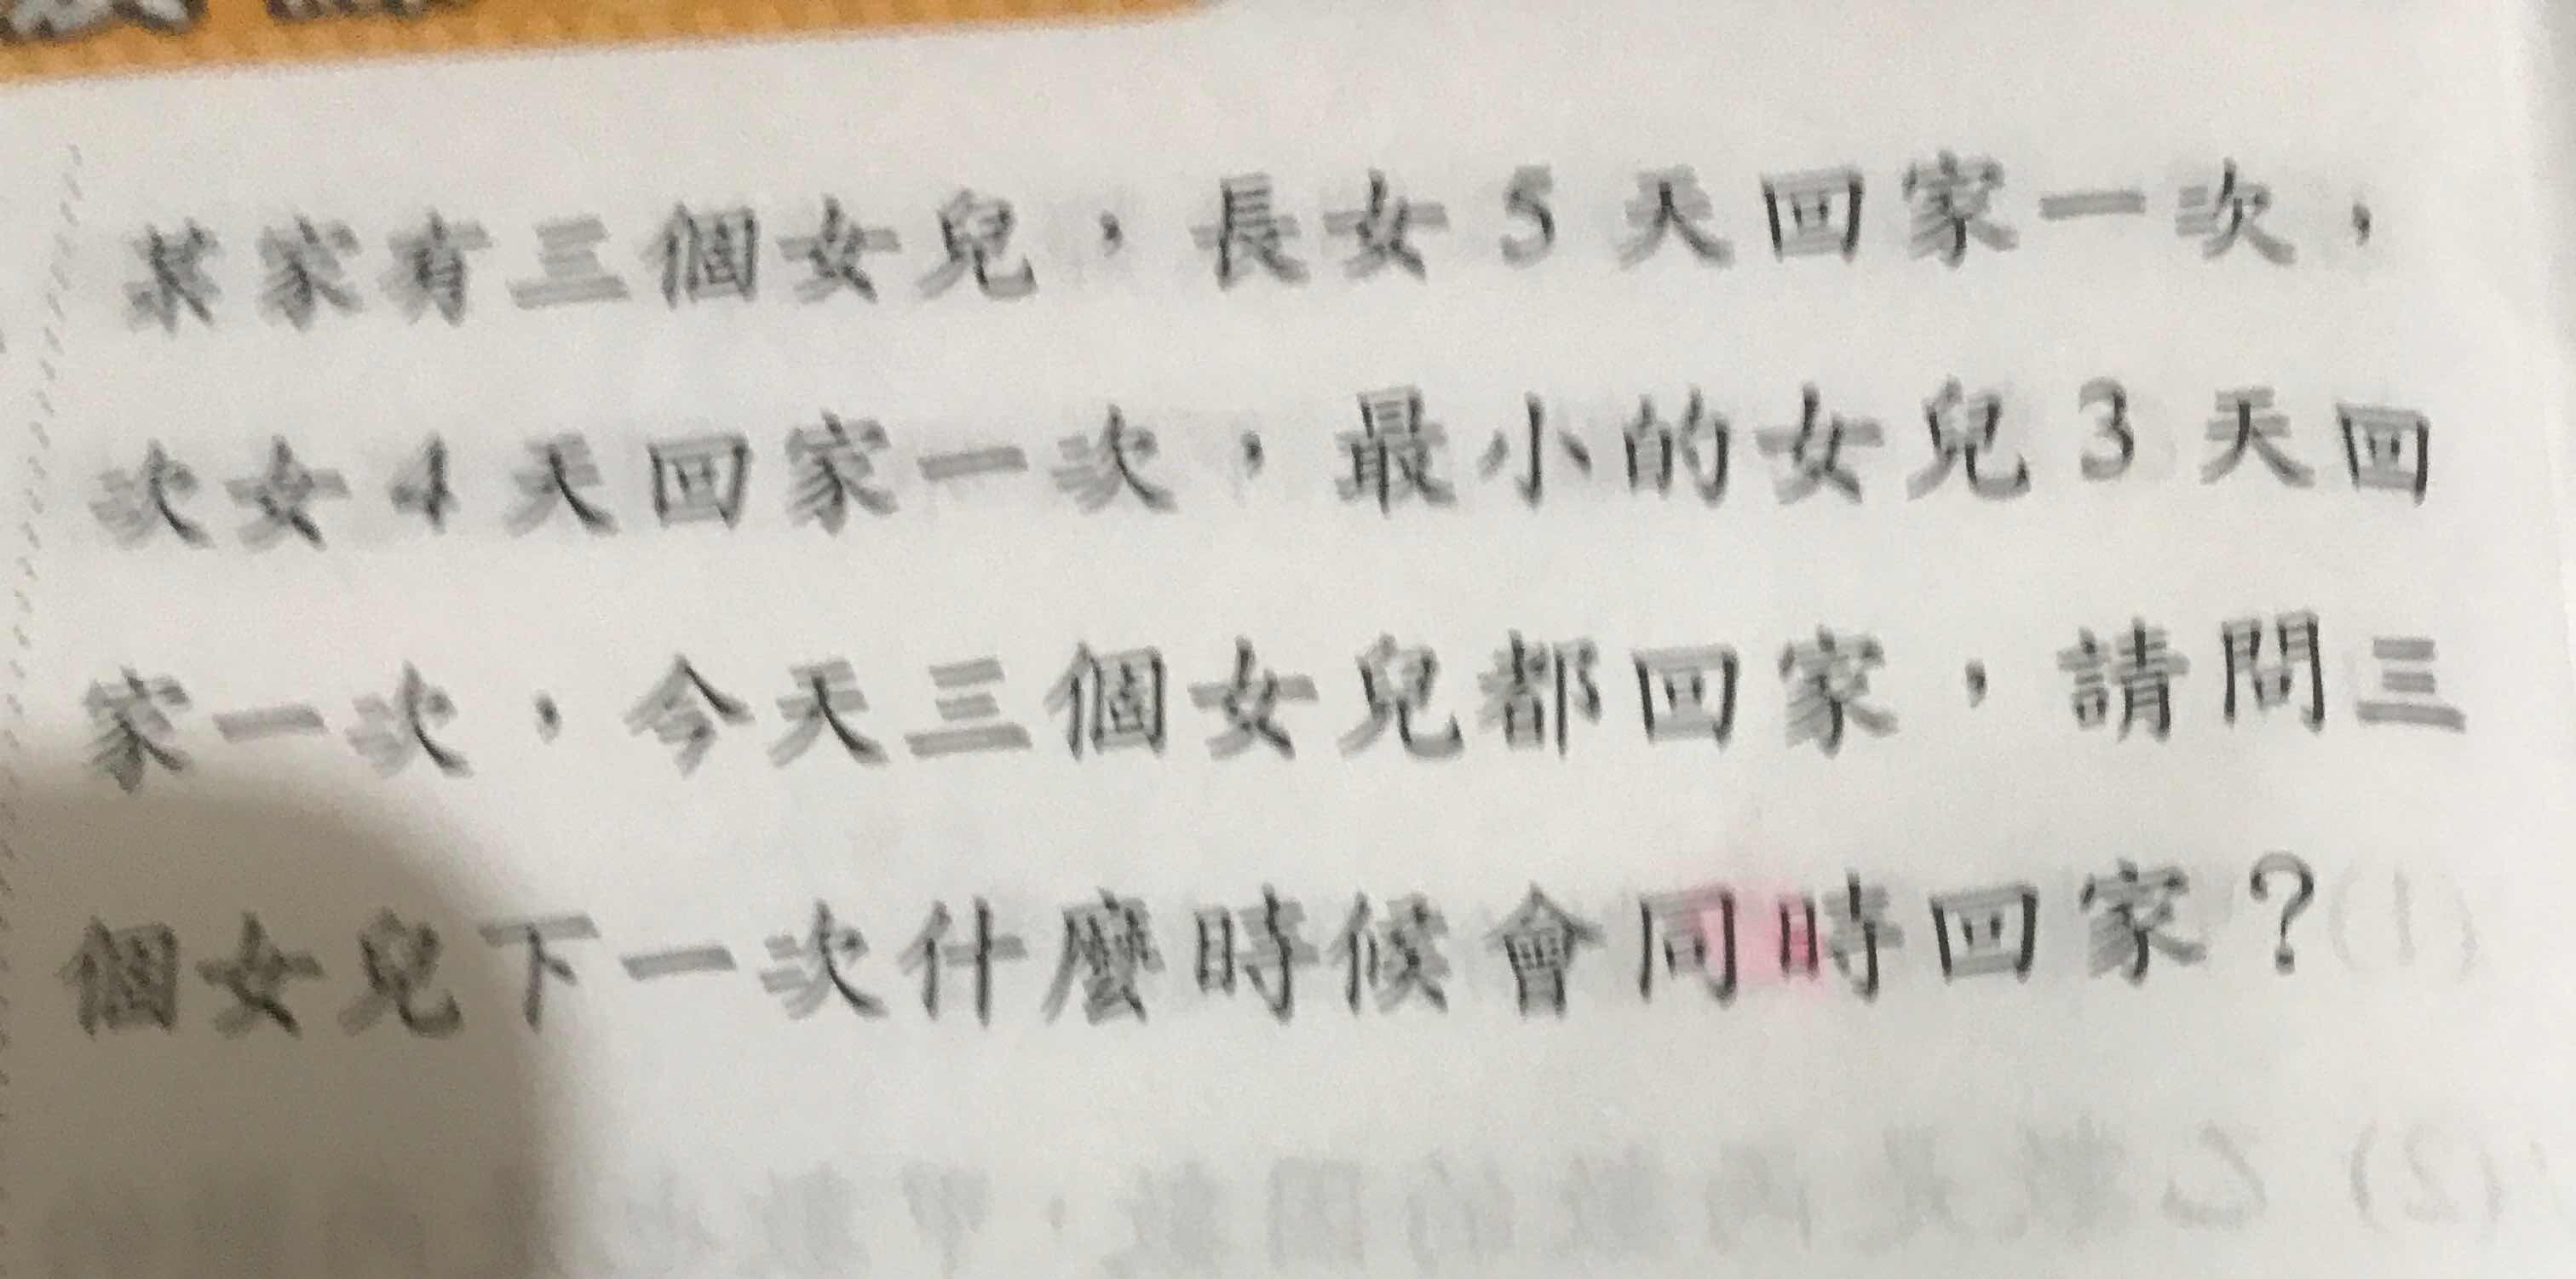 某家有三個女兒，長女5天回家一次，
次女4天回家一次，最小的女兒3天回
家一次，今天三個女兒都回家，請問三
個女兒下一次什麼時候會同時回家？